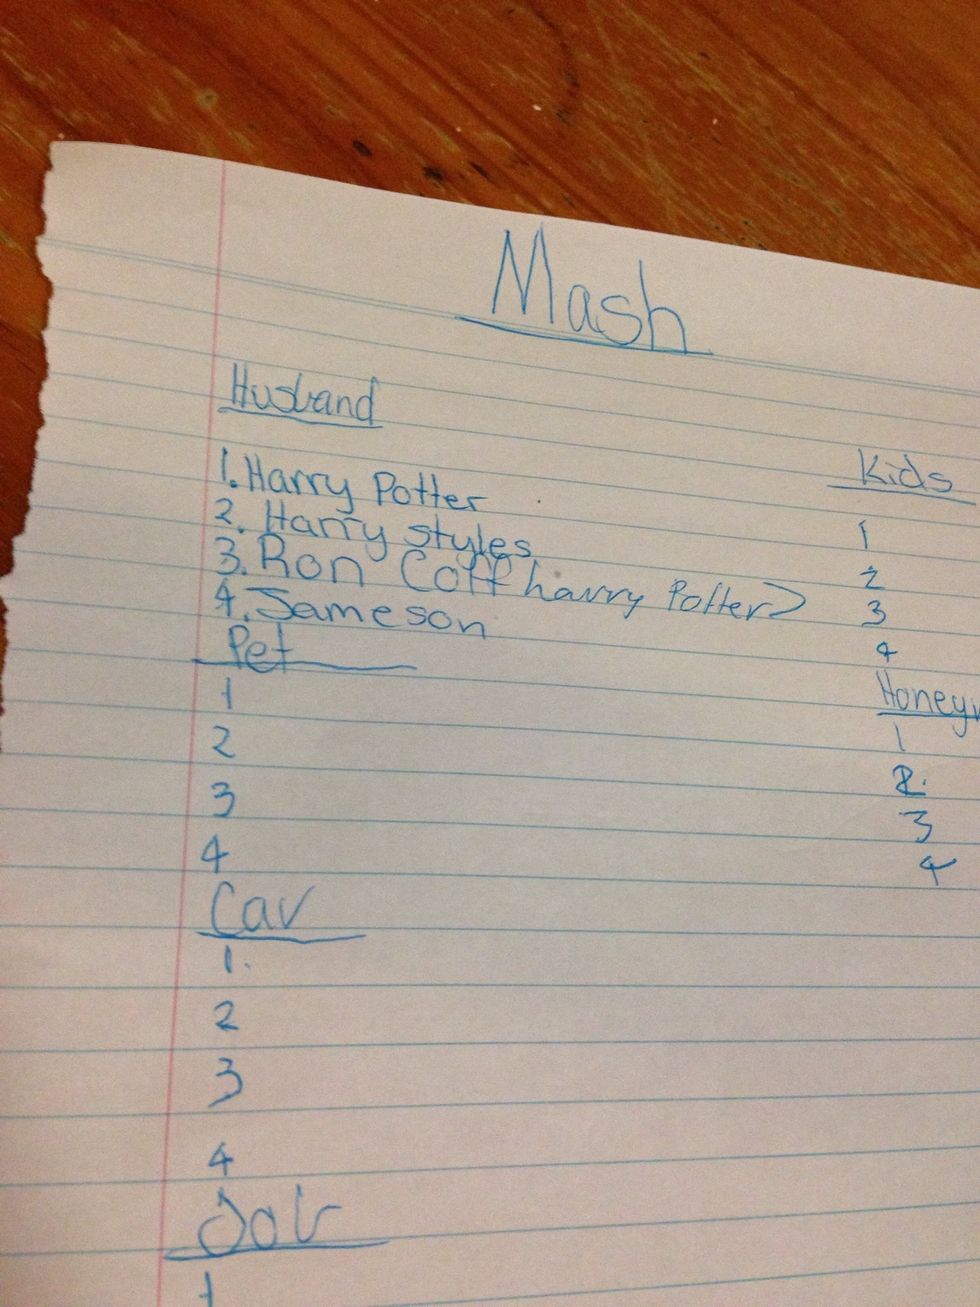 Mash
Husband
1. Harry Potter
2. Harry styles
3. Ron (off harry Potter)
4. Jameson
Pet
1
2
3
4
Car
1.
2
3
4
Job
1
Kids
1
2
3
4
Honeym
1
2.
3
4